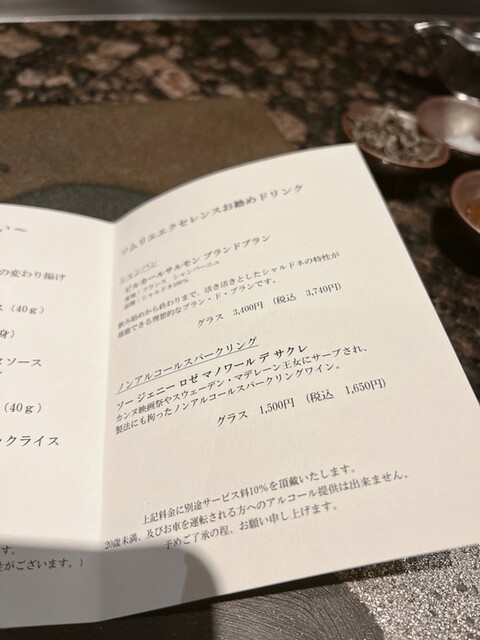 い～
の変わり揚げ
ス（40ｇ）
身）
ソース
（40ｇ）
ックライス
す。
がございます。）
ソムリエエクセレンスお勧めドリンク
シャンパン
ビルカールサルモン ブランドブラン
産地：フランス シャンパーニュ
品種：シャルドネ100%
飲み始めから終わりまで、活き活きとしたシャルドネの特性が
堪能できる理想的なブラン・ド・ブランです。
グラス 3,400円 （税込 3,740円）
ノンアルコールスパークリング
ソー ジェニー ロゼ マノワール デ サクレ
カンヌ映画祭やスウェーデン・マデレーン王女にサーブされ、
製法にも拘ったノンアルコールスパークリングワイン。
グラス 1,500円 （税込 1,650円）
上記料金に別途サービス料10%を頂戴いたします。
20歳未満、及びお車を運転される方へのアルコール提供は出来ません。
予めご了承の程、お願い申し上げます。